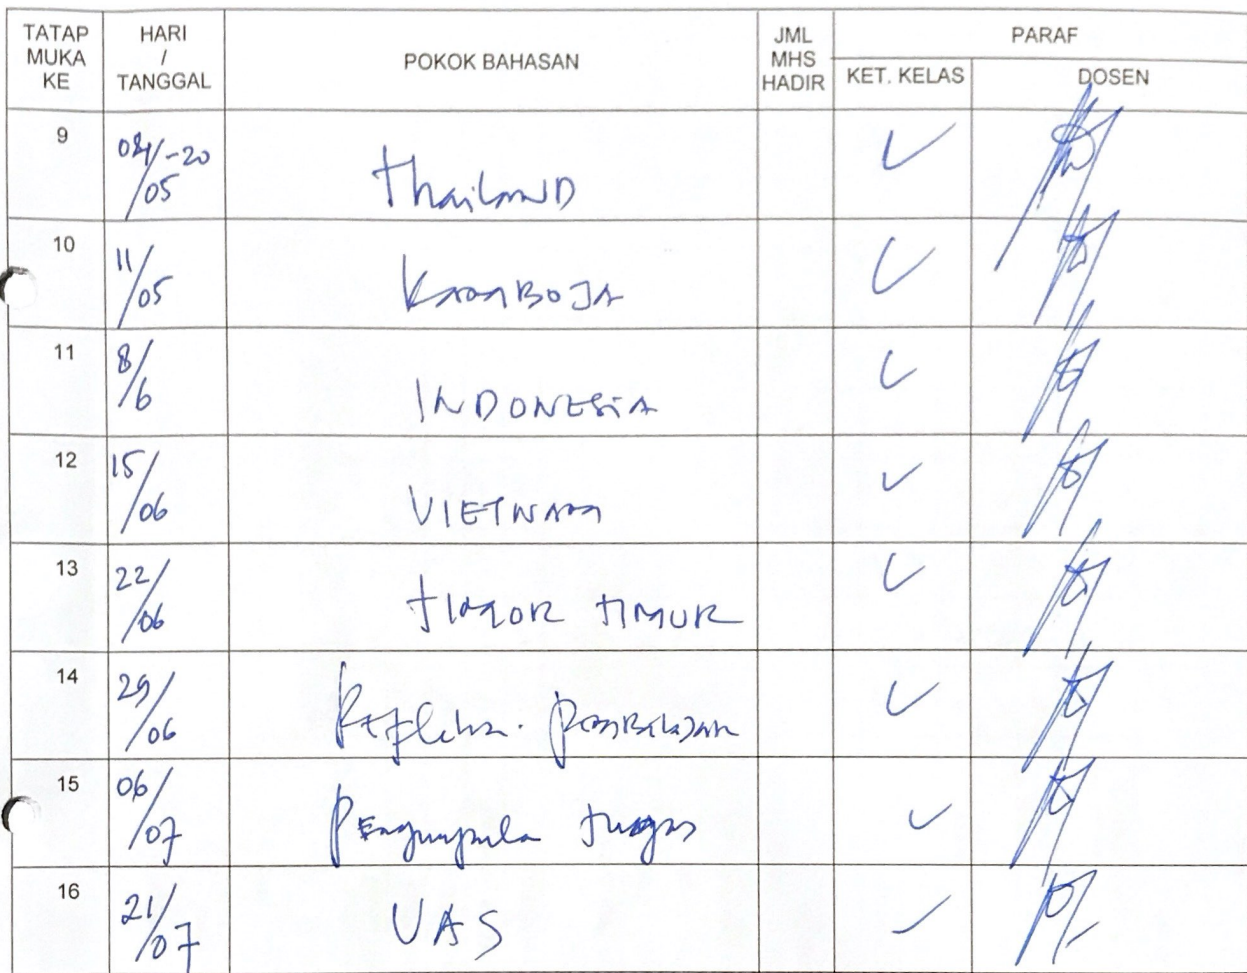 TATAP MUKA KE HARI / TANGGAL POKOK BAHASAN JML MHS HADIR PARAF
KET. KELAS DOSEN
9 04/05-20 Thailand
10 11/05 KamBOJA
11 8/6 INDONESiA
12 15/06 VIETNam
13 22/06 tImOR tImUR
14 29/06 Refleksi
15 06/07 Pengumpula tugas
16 21/07 UAS